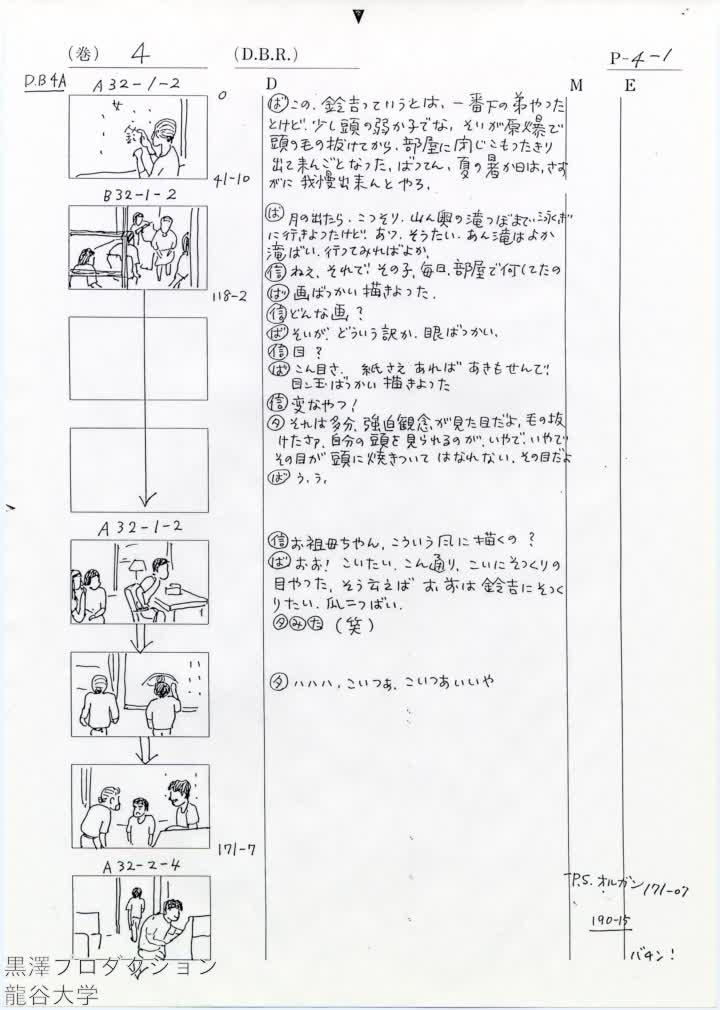 (巻) 4 (D.B.R.) P-4-1
D.B4A
D M E
A32-1-2
0
女
鈴
ば この、鈴吉っていうとは、一番下の弟やった
とけど、少し頭の弱か子でな、そいが原爆で
頭の毛の抜けてから、部屋に閉じこもったきり
出て来んごとなった。ばってん、夏の暑か日は、さす
がに我慢出来んとやろ。
41-10
B32-1-2
ば 月の出たら、こっそり、山ん奥の滝つぼまで、泳ぎ
に行きよったけど、あっ、そうたい、あん滝はよか
滝ばい、行ってみればよか。
信 ねえ、それで、その子、毎日、部屋で何してたの
118-2
ば 画ばっかい描きよった。
信 どんな画?
ば そいが、どういう訳か、眼ばっかい。
信 目?
ば こん目さ、紙さえあればあきもせんで、
目ン玉ばっかい描きよった
信 変なやつ!
タ それは多分、強迫観念が見た目だよ、毛の抜
けたさァ、自分の頭を見られるのが、いやで、いやで
その目が頭に焼きついてはなれない、その目だよ
ば う、う。
A32-1-2
信 お祖母ちゃん、こういう風に描くの?
ば おお! こいたい、こん通り、こいにそっくりの
目やった、そう云えば お前は鈴吉にそっく
りたい、瓜二つばい。
タ み た (笑)
タ ハハハ、こいつぁ、こいつあいいや
171-7
A32-2-4
P.S. オルガン 171-07
190-15
バタン!
黒澤プロダクション
龍谷大学